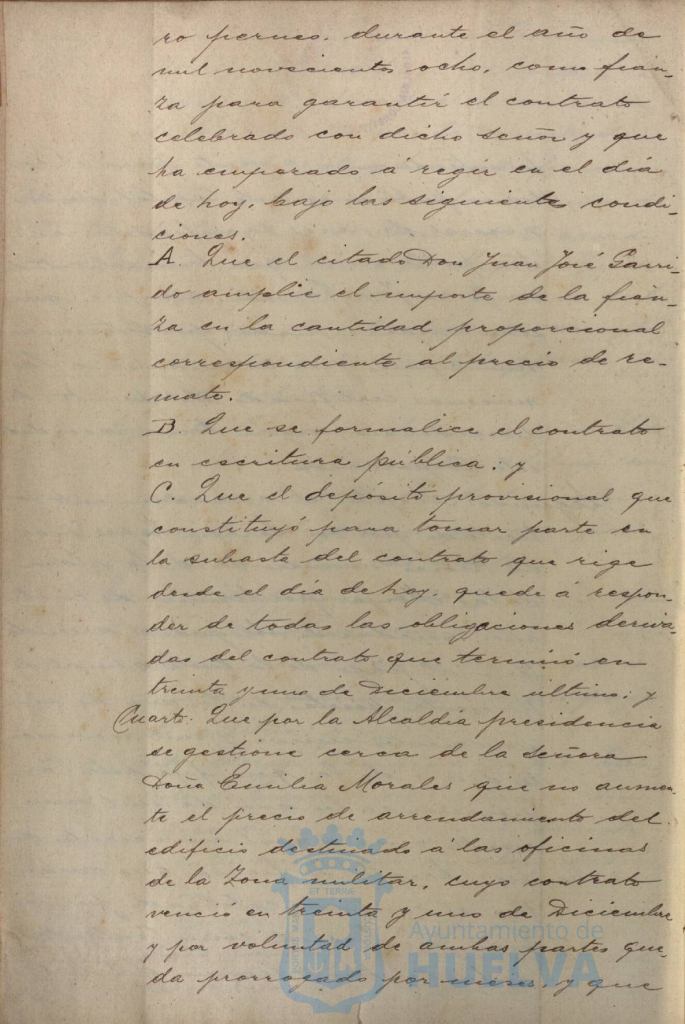 ro pecueo, durante el año de
mil novecientos ocho, como fian-
za para garantir el contrato
celebrado con dicho señor y que
ha empezado á regir en el día
de hoy, bajo las siguientes condi-
ciones.
A. Que el citado Don Juan José Garri-
do amplie el importe de la fian-
za en la cantidad proporcional
correspondiente al precio de re-
mate.
B. Que se formalice el contrato
en escritura pública; y
C. Que el depósito provisional que
constituyó para tomar parte en
la subasta del contrato que rige
desde el día de hoy, quede á respon-
der de todas las obligaciones deriva-
das del contrato que terminó en
treinta y uno de Diciembre último; y
Cuarto. Que por la Alcaldia presidencia
se gestione cerca de la Señora
Doña Emilia Morales que no aumen-
te el precio de arrendamiento del
edificio destinado á las oficinas
de la Zona militar, cuyo contrato
venció en treinta y uno de Diciembre
y por voluntad de ambas partes que-
da prorrogado por meses, y que
ET TERRA
Ayuntamiento de
HUELVA